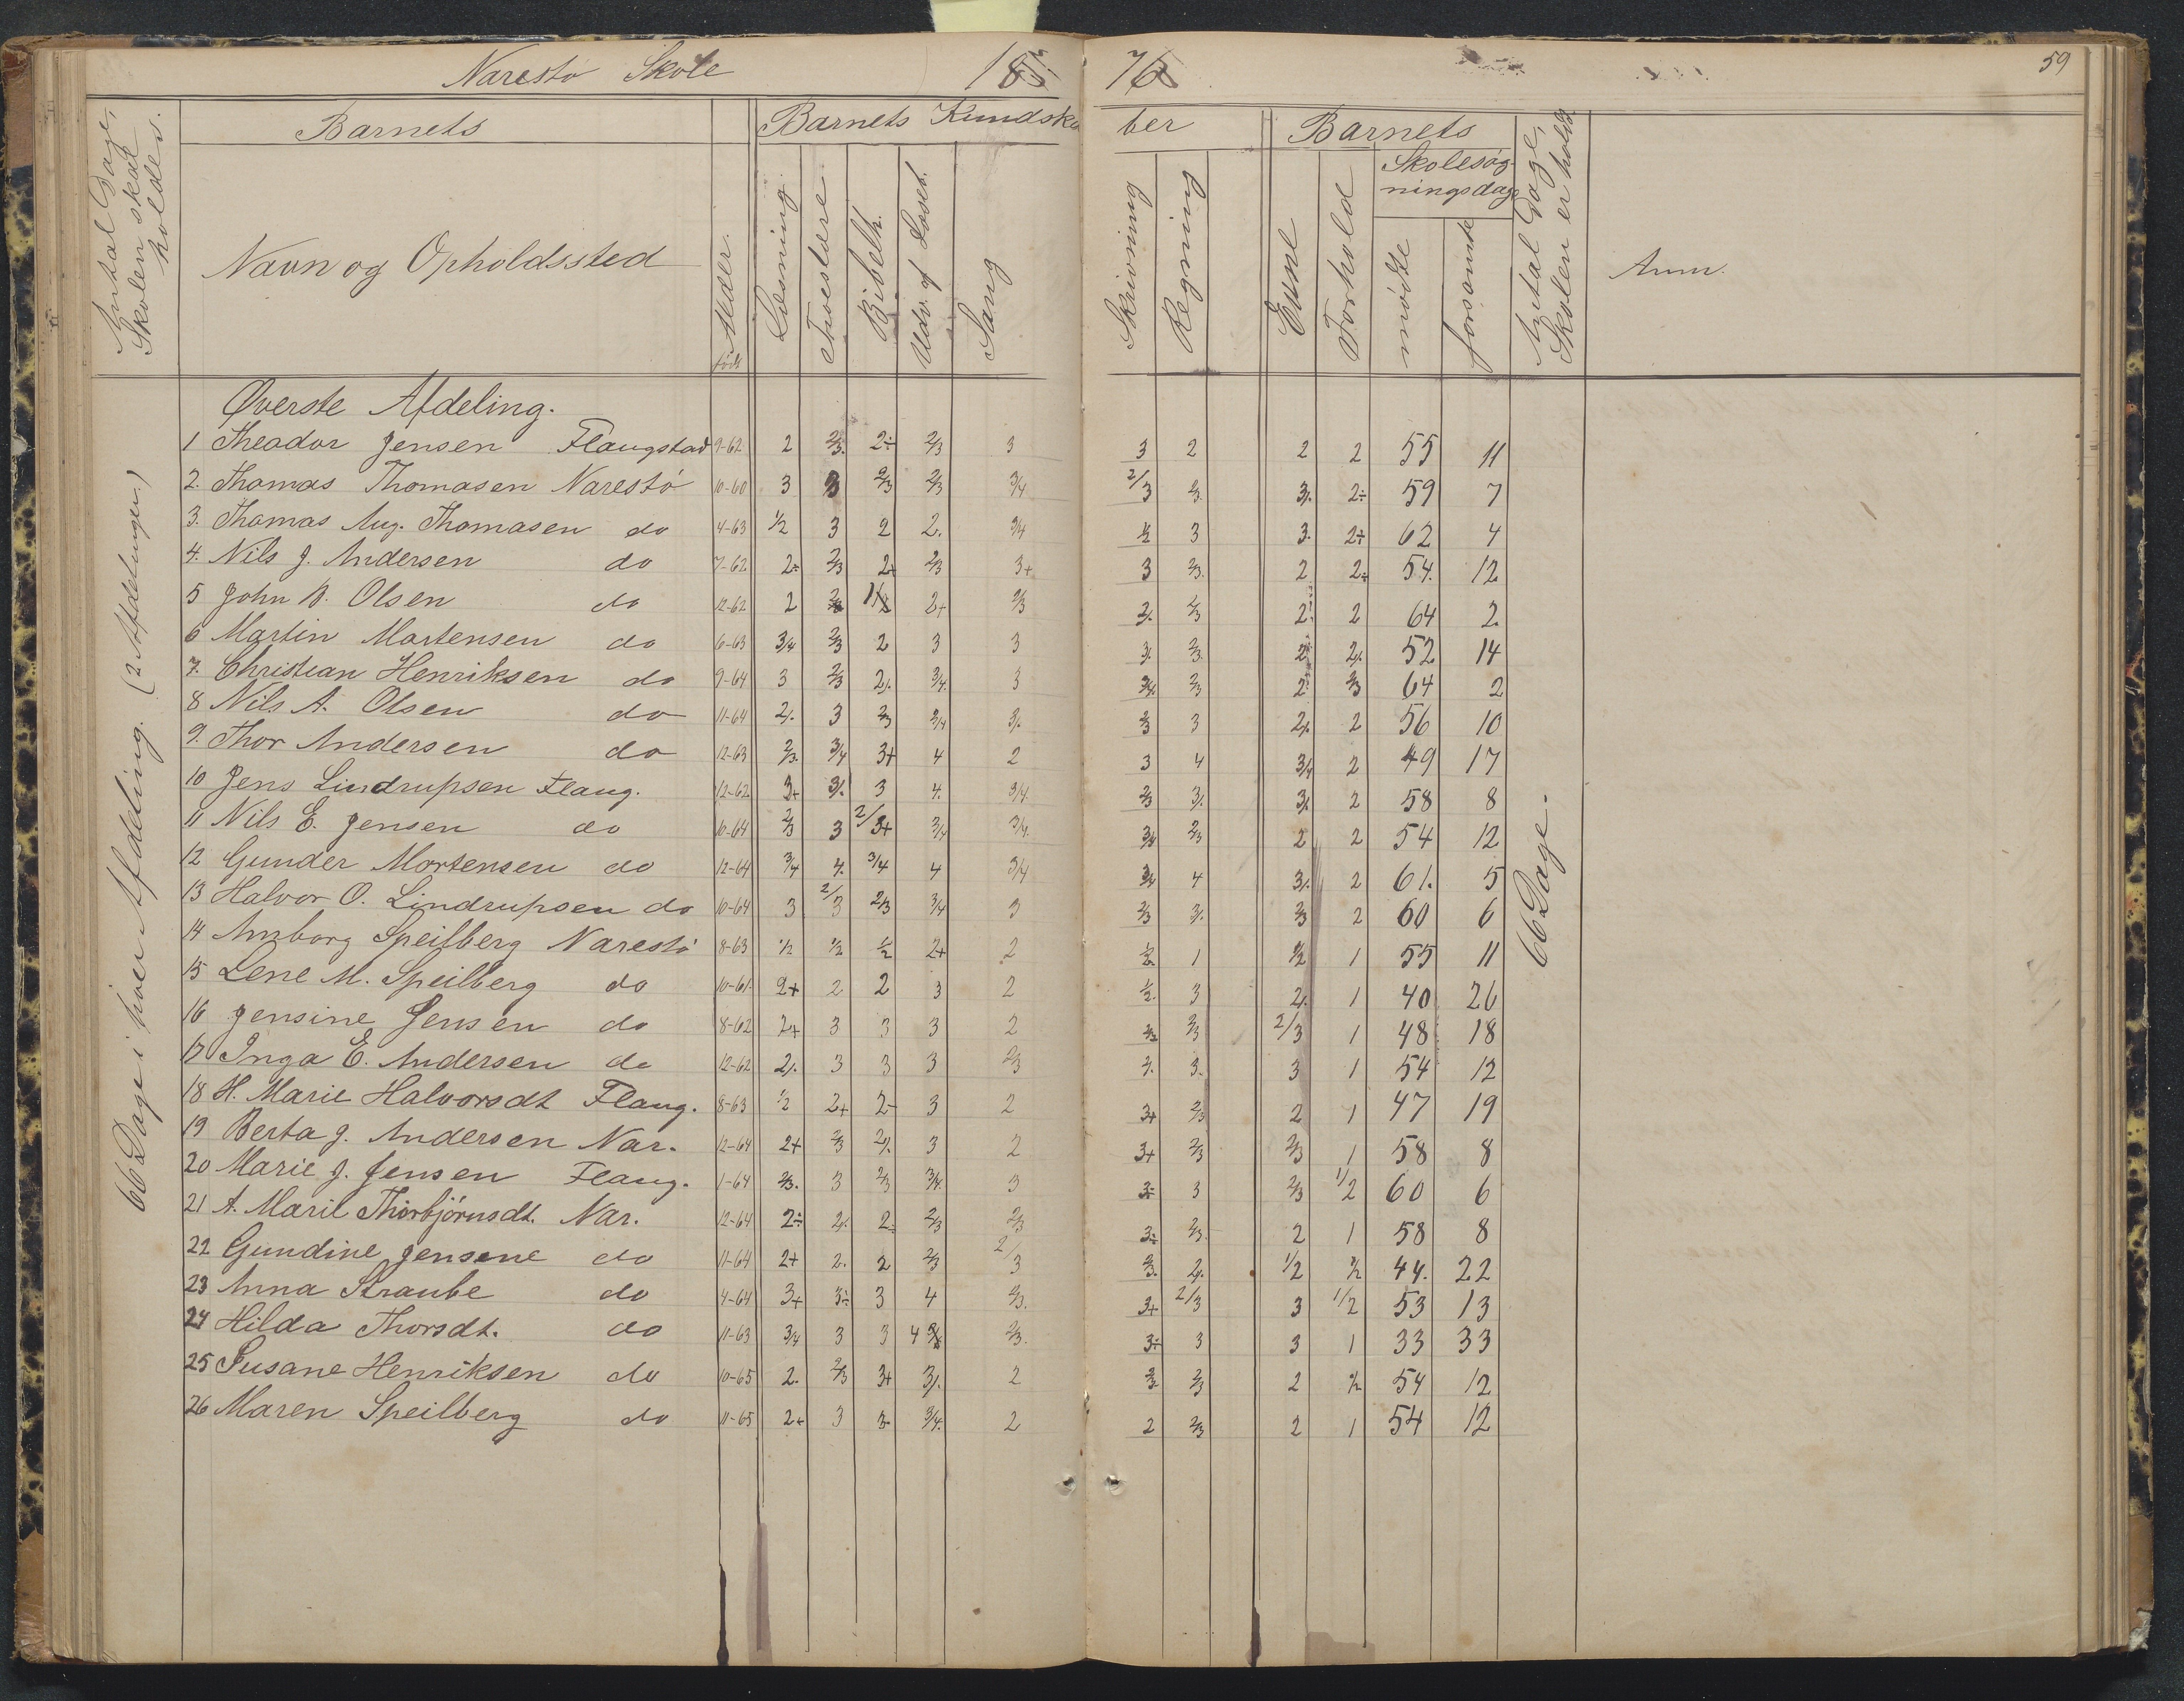 Narestø Skole 18 76
59
Antal Dage, Skolen skal holdes.
Barnets
Navn og Opholdssted
Alder. født
Barnets Kundskaber
Læsning. Troeslære. Bibelh. Udv. af Læseb. Sang Skrivning Regning
Barnets
Evne Forhold
Skolesøgningsdage
mødte forsømte
Antal Dage, Skolen er holdt
Anm.
66 Dage i hver Afdeling. (2 Afdelinger.)
66 Dage.
Øverste Afdeling.
1 Theodor Jensen Flaugstad 9-62 2 2/3. 2÷ 2/3 3 3 2 2 2 55 11
2. Thomas Thomasen Narestø 10-60 3 3 2/3 2/3 3/4 2/3 2/3 3/. 2÷ 59 7
3. Thomas Aug. Thomasen do 4-63 1/2 3 2 2. 3/4 1/2 3 3. 2+ 62 4
4. Nils J. Andersen do 7-62 2÷ 2/3 2+ 2/3 3+ 3 2/3. 2 2÷ 54. 12
5 John B. Olsen do 12-62 2 2+ 2/3 2/. 2/3 2. 2 64 2.
6 Martin Martensen do 6-63 3/4 2/3 2 3 3 3/. 2/3. 2 2/. 52 14
7. Christian Henriksen do 9-64 3 2/3 2/. 3/4. 3 3/4. 2/3 2 2/3 64 2
8 Nils A. Olsen do 11-64 2/. 3 2/3 3/4 3/. 2/3 3 2/. 2 56 10
9. Thor Andersen do 12-63 2/3. 3/4 3+ 4 2 3 4 3/4 2 49 17
10 Jens Lindrupsen Flaug. 12-62 3+ 3/. 3 4. 3/4. 2/3 3/. 3/. 2 58 8
11 Nils E. Jensen do 10-64 2/3 3 3/4 3/4. 3/4 2/3 2 2 54 12
12 Gunder Mortensen do 12-64 3/4 4. 3/4 4 3/4 3/4 4 3/. 2 61. 5
13 Halvor O. Lindrupsen do 10-64 3 2/3 2/3 3/4 3 2/3 3/. 2/3 2 60 6
14 Anborg Speilberg Narestø 8-63 1/2 1/2 1/2 2+ 2 1/2 1 1/2 1 55 11
15 Lene M. Speilberg do 10-61. 2+ 2 2 3 2 1/2. 3 2/. 1 40 26
16 Jensine Jensen do 8-62 2+ 3 3 3 2 2/3 2/3 2/3 1 48 18
17 Inga E. Andersen do 12-62 2/. 3 3 3 2/3 3. 3. 3 1 54 12
18 H. Marie Halvorsdt Flaug. 8-63 1/2 2+ 2- 3 2 3+ 2/3 2 1 47 19
19 Berta J. Andersen Nar. 12-64 2+ 2/3 2/. 3 2 3+ 2/3 2/3 1 58 8
20 Marie J. Jensen Flaug. 1-64 2/3. 3 2/3 3/4. 3 3÷ 3 2/3 1/2 60 6
21 A. Marie Thorbjörnsdt. Nar. 12-64 2÷ 2/. 2÷ 2/3 2/3 3÷ 2/3. 2 1 58 8
22 Gundine Jensene do 11-64 2+ 2. 2 2/3 2/3 2/3. 2/. 1/2 1/2 44. 22
23 Anna Straube do 4-64 3+ 3÷ 3 4 2/3. 3+ 2/3 3 1/2 53 13
24 Hilda Thorsdt. do 11-63 3/4 3 3 4 2/3. 3÷ 3 3 1 33 33
25 Susane Henriksen do 10-65 2. 2/3 3+ 3/. 2 2/3 2/3 2 1/2 54 12
26 Maren Speilberg do 11-65 2+ 3 3- 3/4. 2 2 2/3 2 1 54 12